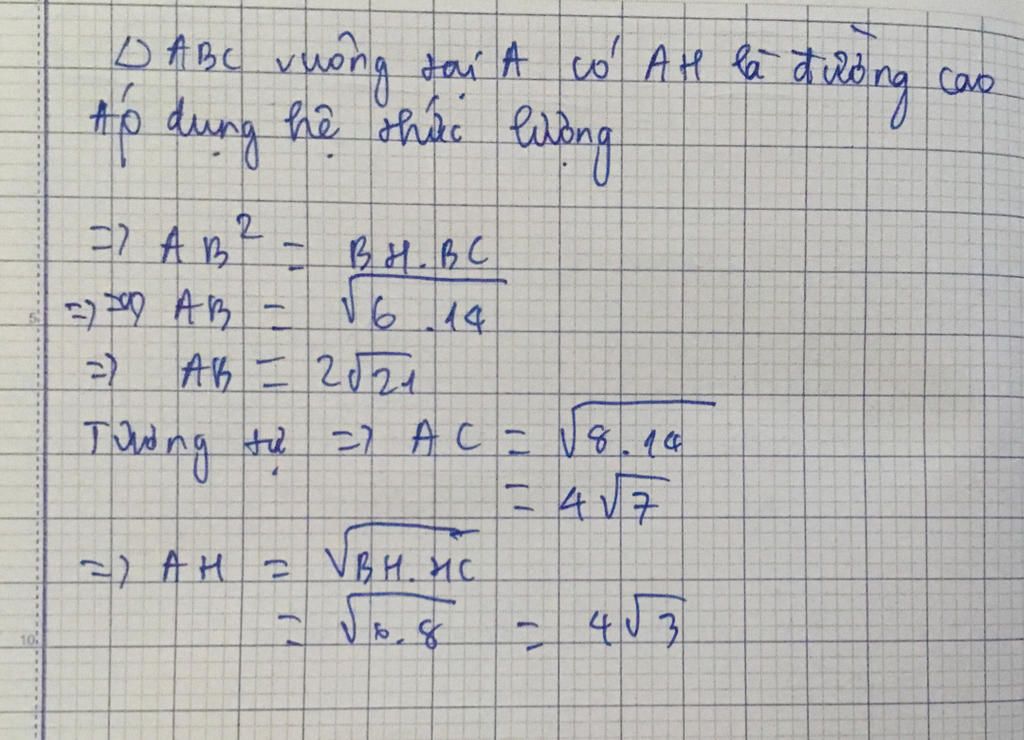 △ ABC vuông tại A có AH là đường cao
Áp dụng hệ thức lượng
=> AB² = BH.BC
=> AB = √6.14
=> AB = 2√21
Tương tự => AC = √8.14
= 4√7
=> AH = √BH.HC
= √6.8 = 4√3
5
10